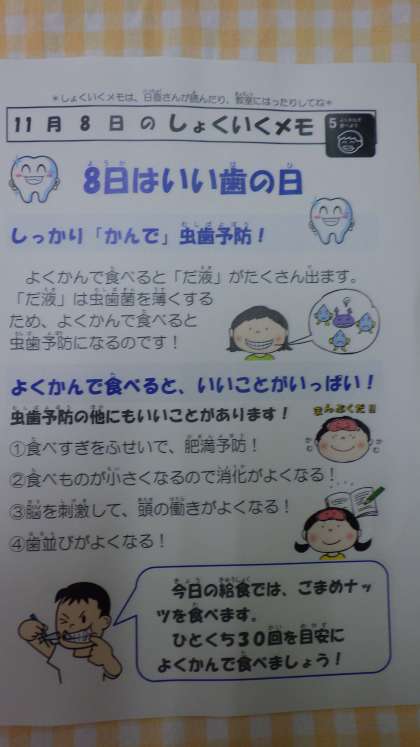 ＊しょくいくメモは、日直さんが読んだり、教室にはったりしてね＊
11月8日のしょくいくメモ
5
8日はいい歯の日
しっかり「かんで」虫歯予防！
よくかんで食べると「だ液」がたくさん出ます。
「だ液」は虫歯菌を薄くする
ため、よくかんで食べると
虫歯予防になるのです！
よくかんで食べると、いいことがいっぱい！
虫歯予防の他にもいいことがあります！
まんぷくだ!!
①食べすぎをふせいで、肥満予防！
②食べものが小さくなるので消化がよくなる！
③脳を刺激して、頭の働きがよくなる！
④歯並びがよくなる！
今日の給食では、ごまめナッ
ツを食べます。
ひとくち30回を目安に
よくかんで食べましょう！